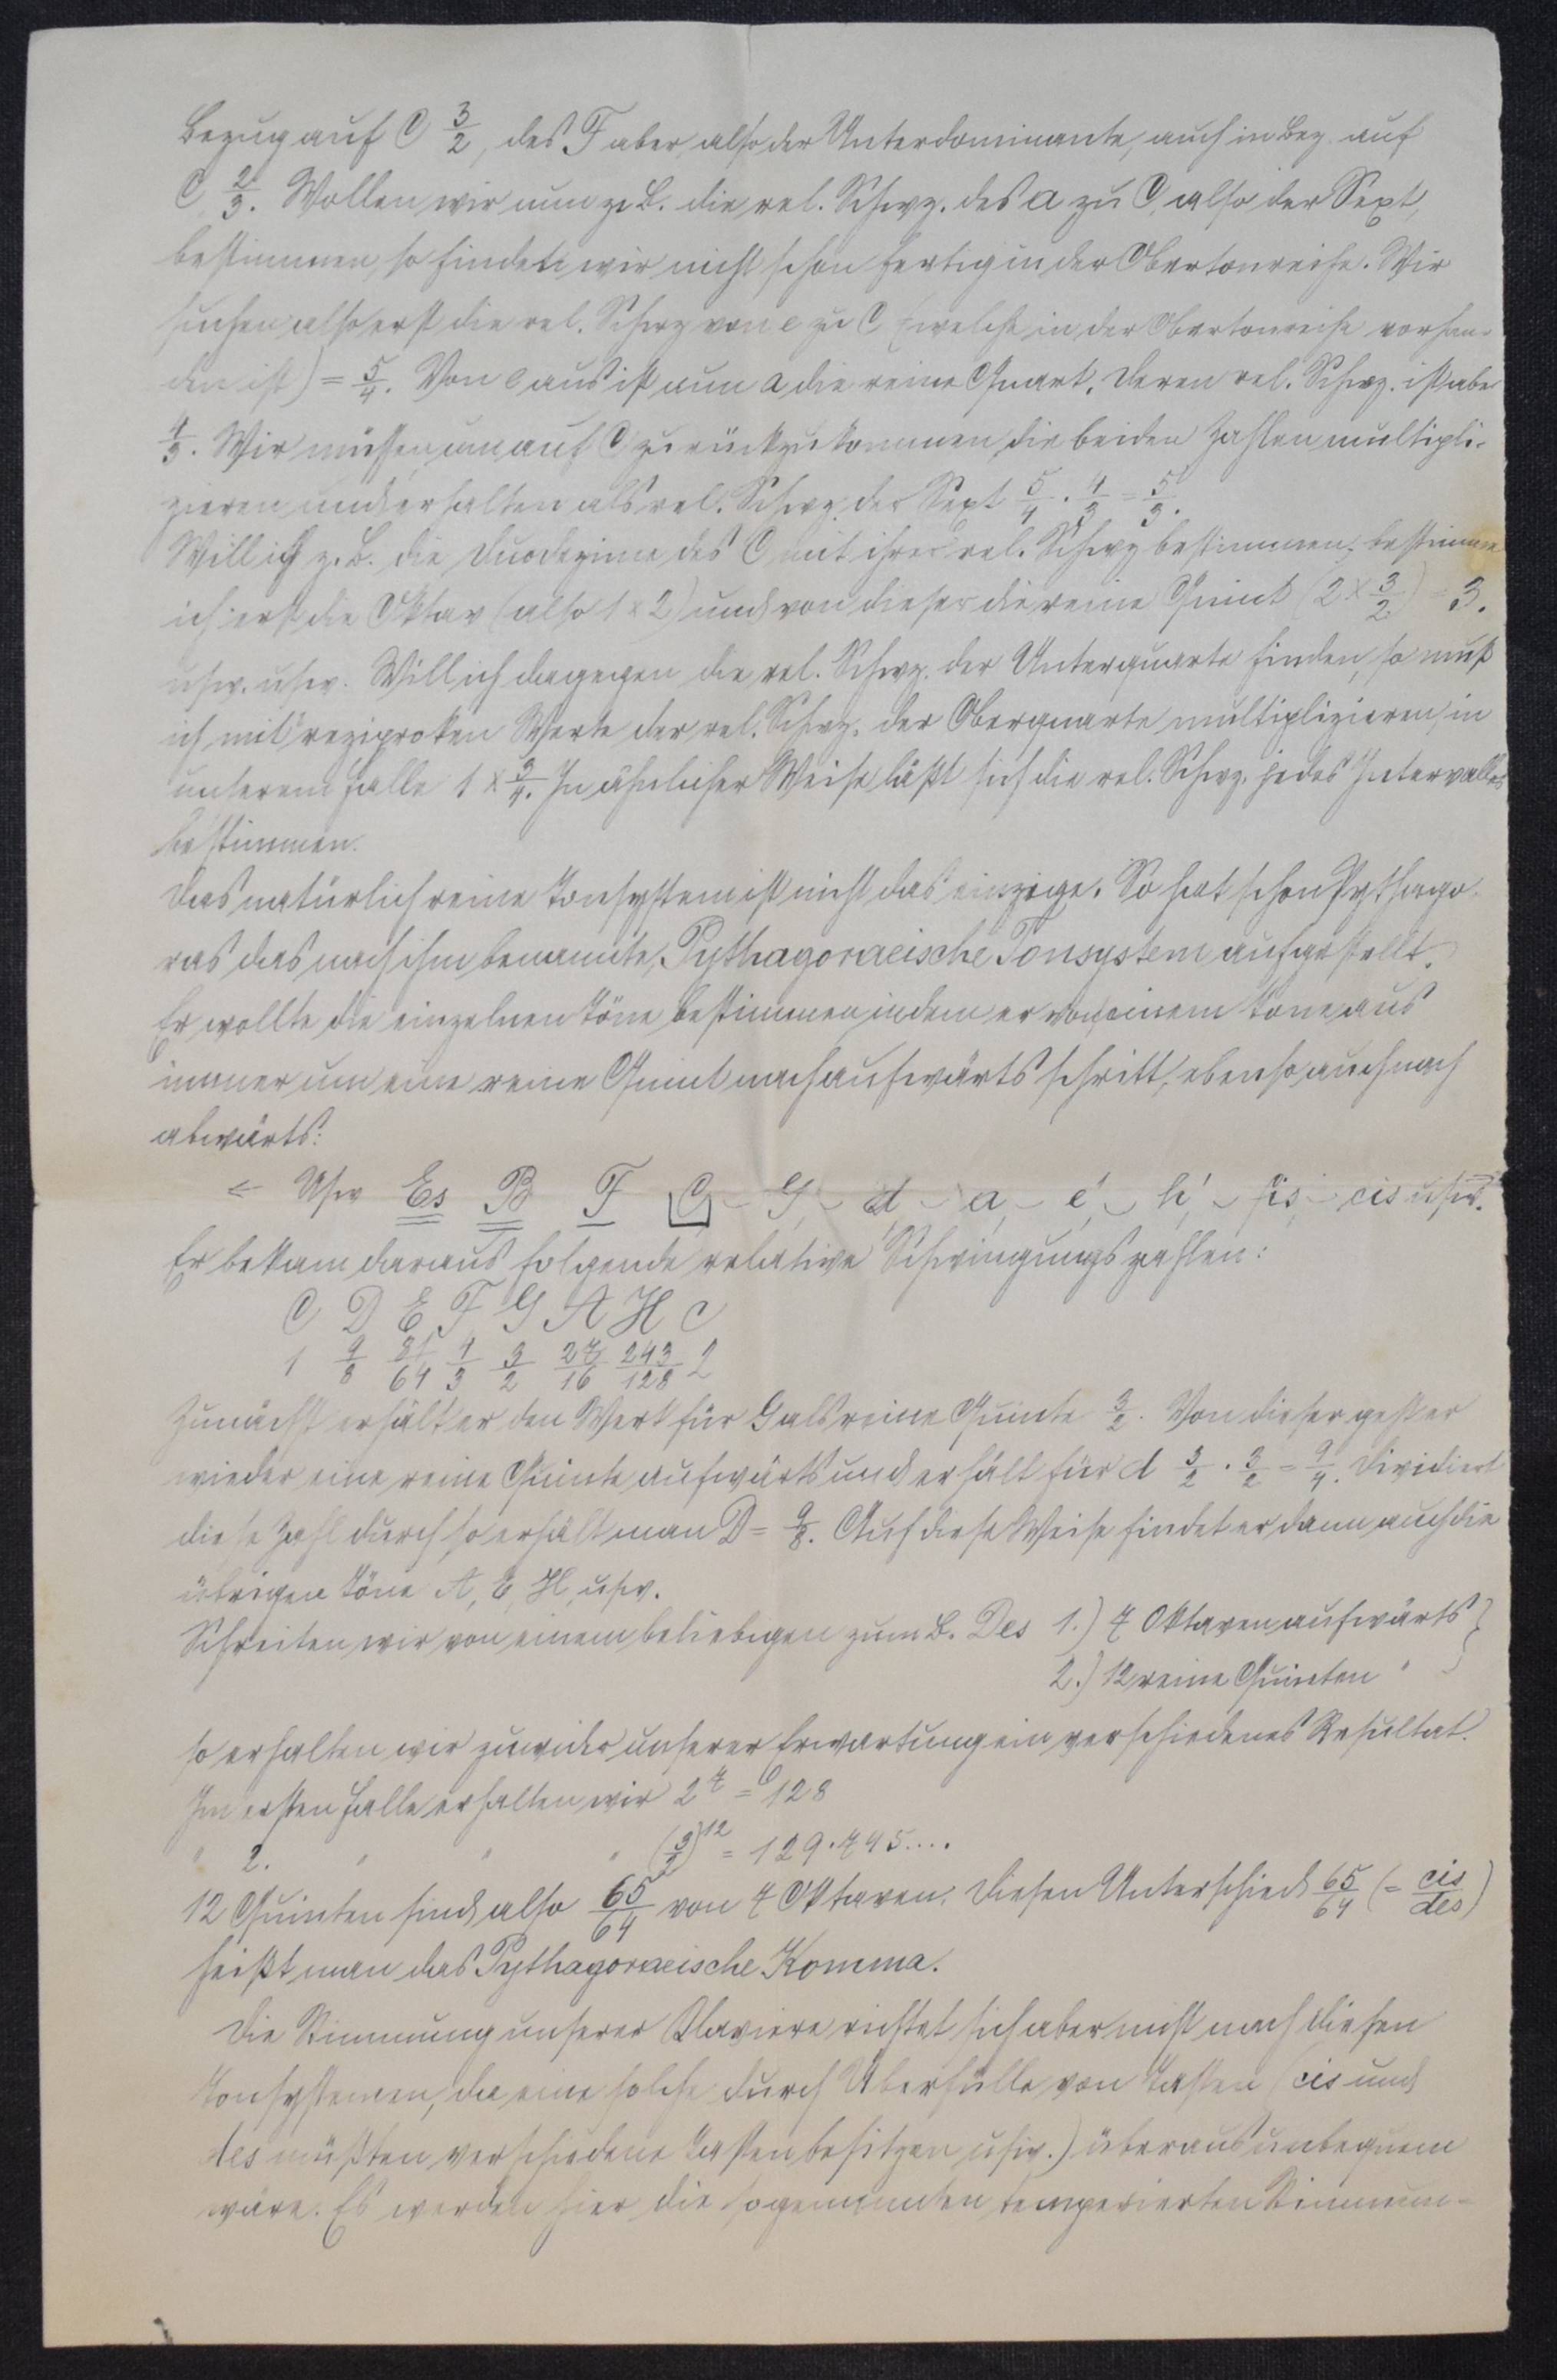 Bezug auf C 3/2, des F aber, also der Unterdominante, auch in Bez. auf
C 2/3. Wollen wir nun z. B. die rel. Schwgz. des a zu C, also der Sext,
bestimmen, so finden wir nicht schon fertig in der Obertonreihe. Wir
suchen also erst die rel. Schwgz von e zu C (welche in der Obertonreihe vorhan-
den ist) = 5/4. Von e aus ist nun a die reine Quart. Deren rel. Schwgz. ist abe
4/3. Wir müssen, um auf C zurückzukommen, die beiden Zahlen multipli-
zieren und erhalten als rel. Schwgz der Sext 5/4 . 4/3 = 5/3.
Will ich z. B. die Duodezime des C mit ihrer rel. Schwgz bestimmen, bestimme
ich erst die Oktav (also 1 x 2) und von dieser die reine Quint (2 x 3/2) = 3.
usw. usw. Will ich dagegen die rel. Schwgz. der Unterquarte finden, so muß
ich mit reziproken Werte der rel. Schwgz. der Oberquarte multiplizieren, in
unserem Falle 1 x 3/4. In ähnlicher Weise läßt sich die rel. Schwgz. jedes Intervalles
bestimmen.
Das natürlich reine Tonsystem ist nicht das einzige. So hat schon Pythago-
ras das nach ihm benannte Pythagoraeische Tonsystem aufgestellt.
Er wollte die einzelnen Töne bestimmen indem er von einem Tone aus
immer um eine reine Quint nach aufwärts schritt, ebenso auch nach
abwärts:
← Usw Es B F C - G - d - a - e' - h' - fis - cis usw.
Er bekam daraus folgende relative Schwingungszahlen:
C D E F G A H c
1 9/8 81/64 4/3 3/2 27/16 243/128 2
Zunächst erhält er den Wert für G als reine Quinte 3/2. Von dieser geht er
wieder eine reine Quinte aufwärts und erhält für d 3/2 . 3/2 = 9/4. Dividiert
diese Zahl durch, so erhält man D = 9/8. Auf diese Weise findet er dann auch die
übrigen Töne A, E, H, usw.
Schreiten wir von einem beliebigen zum B. Des 1.) 7 Oktaven aufwärts }
2.) 12 reine Quinten "
so erhalten wir zuwider unserer Erwartung ein verschiedenes Resultat.
Im ersten Falle erhalten wir 2^7 = 128
" 2. " " " (3/2)^12 = 129.745....
12 Quinten sind also 65/64 von 7 Oktaven. Diesen Unterschied 65/64 (= cis/des)
heißt man das Pythagoraeische Komma.
Die Stimmung unserer Klaviere richtet sich aber nicht nach diesen
Tonsystemen, da eine solche durch Überfülle von Tasten (cis und
des müßten verschiedene Tasten besitzen usw.) überaus unbequem
wäre. Es werden hier die sogenannten temperierten Stimmun-